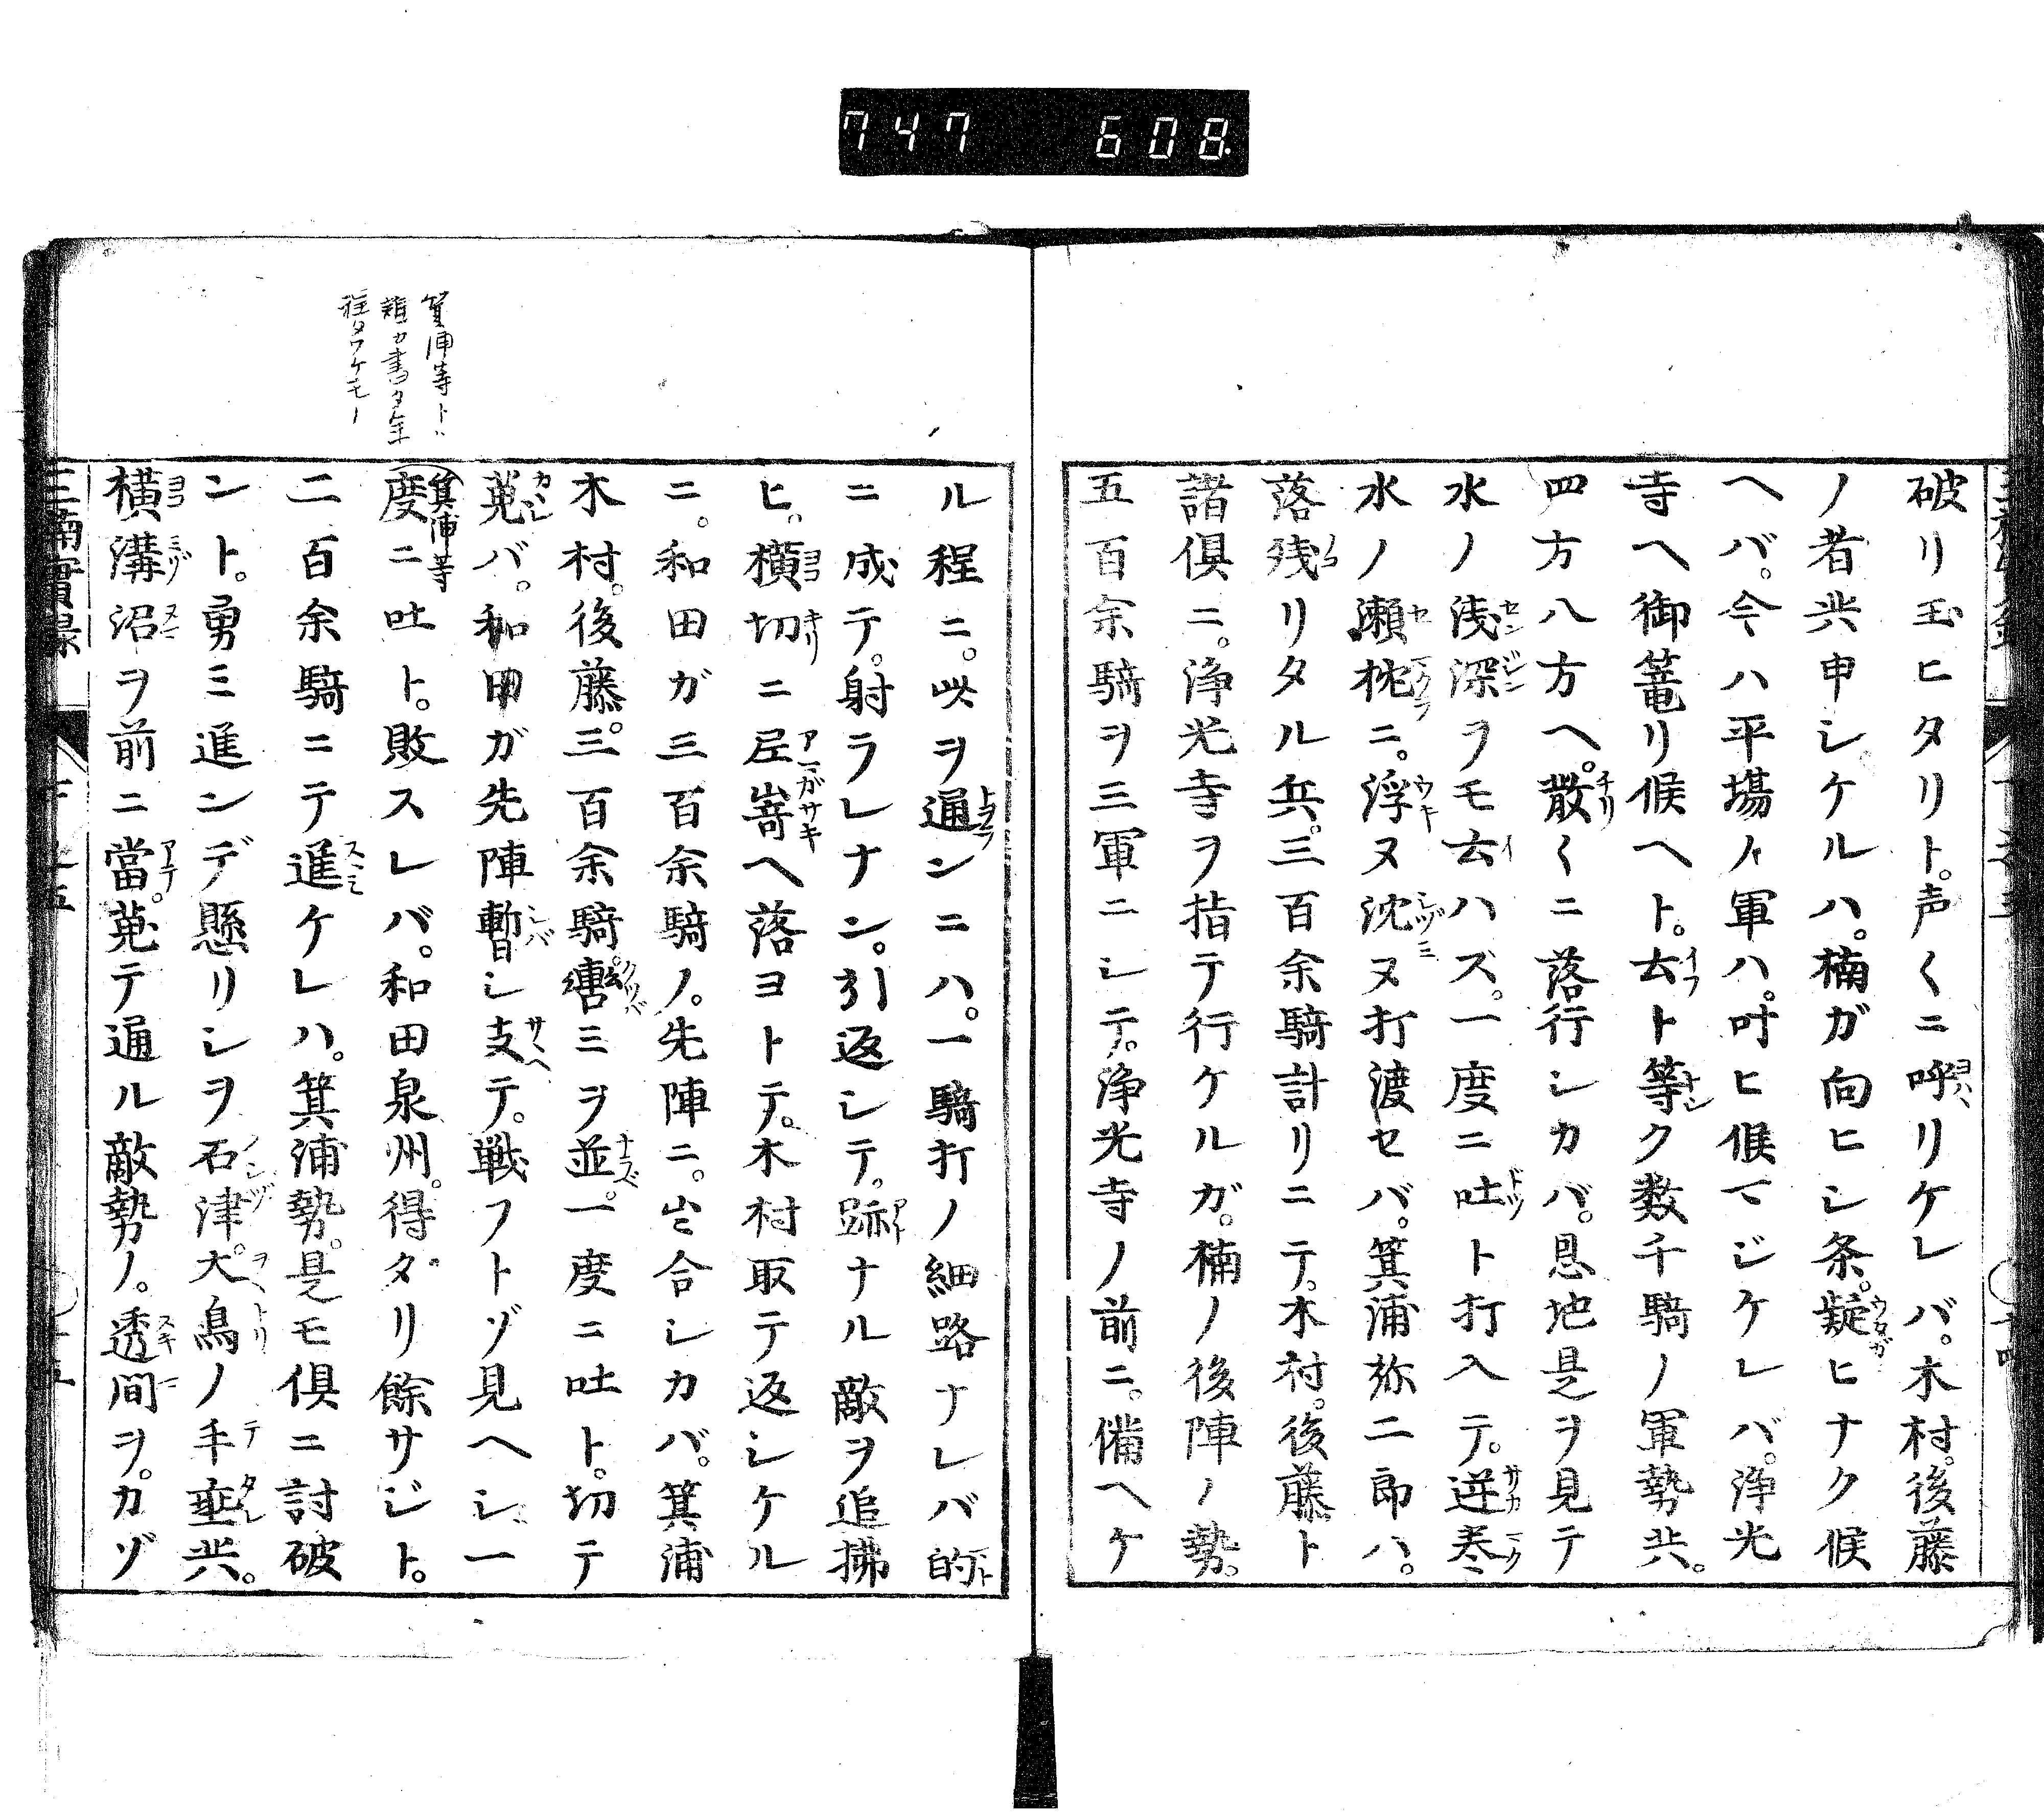 747 608
破リ玉ヒタリト。声〱ニ呼リケレバ。木村。後藤
ノ者共申シケルハ。楠ガ向ヒシ条。疑ヒナク候
ヘバ。今ハ平場ノ軍ハ。叶ヒ候マジケレバ。浄光
寺ヘ御篭リ候ヘト。云ト等ク数千騎ノ軍勢共。
四方八方ヘ。散〱ニ落行シカバ。恩地是ヲ見テ
水ノ浅深ヲモ云ハズ。一度ニ吐ト打入テ。逆巻
水ノ瀬枕ニ。浮ヌ沈ヌ打渡セバ。箕浦弥二郎ハ。
落残リタル兵。三百余騎計リニテ。木村。後藤ト
諸倶ニ。浄光寺ヲ指テ行ケルガ。楠ノ後陣ノ勢。
五百余騎ヲ三軍ニシテ。浄光寺ノ前ニ。備ヘケ
ル程ニ。此ヲ通ンニハ。一騎打ノ細路ナレバ的
ニ成テ。射ラレナン。引返シテ。跡ナル敵ヲ追拂
ヒ。横切ニ尼嵜ヘ落ヨトテ。木村取テ返シケル
ニ。和田ガ三百余騎ノ。先陣ニ。出合シカバ。箕浦
木村。後藤。三百余騎。轡ミヲ並。一度ニ吐ト。切テ
蒐バ。和田ガ先陣暫シ支テ。戦フトゾ見ヘシ。一
度ニ吐ト。敗スレバ。和田泉州。得タリ餘サジト。
箕浦等
二百余騎ニテ進ケレハ。箕浦勢。是モ倶ニ討破
ント。勇ミ進ンデ懸リシヲ石津。大鳥ノ手垂共。
横溝沼ヲ前ニ當。蒐テ通ル敵勢ノ。透間ヲ。カゾ
箕浦等ト
誰カ書タ
タワケモノ